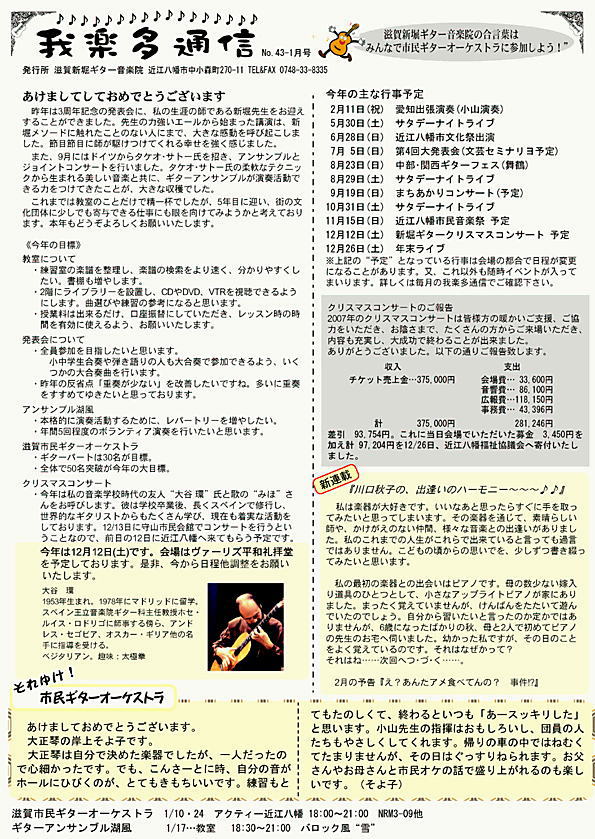 我楽多通信
No.43-1月号
滋賀新堀ギター音楽院の合言葉は
みんなで市民ギターオーケストラに参加しよう!"
発行所 滋賀新堀ギター音楽院 近江八幡市中小森町270-11 TEL&FAX 0748-33-8335
あけましてしておめでとうございます
昨年は3周年記念の発表会に、私の生涯の師である新堀先生をお迎え
することができました。先生の力強いエールから始まった講演は、新
堀メソードに触れたことのない人にまで、大きな感動を呼び起こしま
した。節目節目に師が駆けつけてくれる幸せを強く感じました。
また、9月にはドイツからタケオ・サトー氏を招き、アンサンブルと
ジョイントコンサートを行いました。タケオ・サトー氏の柔軟なテクニッ
クから生まれる美しい音楽と共に、ギターアンサンブルが演奏活動で
きる力をつけてきたことが、大きな収穫でした。
これまでは教室のことだけで精一杯でしたが、5年目に迎い、街の文
化団体に少しでも寄与できる仕事にも眼を向けてみようかと考えており
ます。本年もどうぞよろしくお願いいたします。
《今年の目標》
教室について
・練習室の楽譜を整理し、楽譜の検索をより速く、分かりやすくし
たい。書棚も増やします。
・2階にライブラリーを設置し、CDやDVD、VTRを視聴できるよう
にします。曲選びや練習の参考になると思います。
・授業料は出来るだけ、口座振替にしていただき、レッスン時の時
間を有効に使えるよう、お願いいたします。
発表会について
・全員参加を目指したいと思います。
小中学生合奏や弾き語りの人も大合奏で参加できるよう、いく
つかの大合奏曲を行います。
・昨年の反省点「重奏が少ない」を改善したいですね。多いに重奏
をすすめてゆきたいと思っております。
アンサンブル湖風
・本格的に演奏活動するために、レパートリーを増やしたい。
・年間5回程度のボランティア演奏を行いたいと思います。
滋賀市民ギターオーケストラ
・ギターパートは30名が目標。
・全体で50名突破が今年の大目標。
クリスマスコンサート
・今年は私の音楽学校時代の友人“大谷 環”氏と歌の“みほ”さ
んをお呼びします。彼は学校卒業後、長くスペインで修行し、
世界的なギタリストからもたくさん学び、現在も着実な活動を
しております。12/13日に守山市民会館でコンサートを行うとい
うことなので、前日の12日に近江八幡へ来てもらう予定です。
今年は12月12日(土)です。会場はヴォーリズ平和礼拝堂
を予定しております。是非、今から日程他調整をお願い
いたします。
大谷 環
1953年生まれ。1978年にマドリッドに留学。
スペイン王立音楽院ギター科主任教授ホセ・
ルイス・ロドリゴに師事する傍ら、アンド
レス・セゴビア、オスカー・ギリア他の名
手に指導を受ける。
ベジタリアン。趣味:太極拳
今年の主な行事予定
2月11日(祝) 愛知出張演奏(小山演奏)
5月30日(土) サタデーナイトライブ
6月28日(日) 近江八幡市文化祭出演
7月 5日(日) 第4回大発表会(文芸セミナリヨ予定)
8月23日(日) 中部・関西ギターフェス(舞鶴)
8月29日(土) サタデーナイトライブ
9月19日(祝) まちあかりコンサート(予定)
10月31日(土) サタデーナイトライブ
11月15日(日) 近江八幡市民音楽祭 予定
12月12日(土) 新堀ギタークリスマスコンサート 予定
12月26日(土) 年末ライブ
※上記の“予定”となっている行事は会場の都合で日程が変更
になることがあります。又、これ以外も随時イベントが入って
まいります。詳しくは毎月の我楽多通信でご確認下さい。
クリスマスコンサートのご報告
2007年のクリスマスコンサートは皆様方の暖かいご支援、ご協
力をいただき、お陰さまで、たくさんの方からご来場いただき、
内容も充実し、大成功で終わることが出来ました。
ありがとうございました。以下の通りご報告致します。
収入 支出
チケット売上金…375,000円 会場費… 33,600円
音響費… 86,100円
広報費…118,150円
事務費… 43,396円
計 375,000円 281,246円
差引 93,754円。これに当日会場でいただいた募金 3,450円を
加え計 97,204円を12/26日、近江八幡福祉協議会へ寄付いたし
ました。
新連載
『川口秋子の、出逢いのハーモニー~~~~♪♪』
私は楽器が大好きです。いいなあと思ったらすぐに手を取っ
てみたいと思ってしまいます。その楽器を通じて、素晴らしい
師や、かけがえのない仲間、様々な音楽との出逢いがありまし
た。私のこれまでの人生がこれらで出来ていると言っても過言
ではありません。こどもの頃からの思いでを、少しずつ書き綴っ
てみたいと思います。
私の最初の楽器との出会いはピアノです。母の数少ない嫁入
り道具のひとつとして、小さなアップライトピアノが家にあり
ました。まったく覚えていませんが、けんばんをたたいて遊ん
でいたのでしょう。自分から習いたいと言ったのか定かではあ
りませんが、6歳になったばかりの秋、母と2人で初めてピアノ
の先生のお宅へ伺いました。幼かった私ですが、その日のこと
をよく覚えているのです。それはなぜかって?
それはね……次回へつ・づ・く……。
2月の予告『え?あんたアメ食べてんの? 事件!?』
それゆけ!
市民ギターオーケストラ
あけましておめでとうございます。
大正琴の岸上そよ子です。
大正琴は自分で決めた楽器でしたが、一人だったの
で心細かったです。でも、こんさーとに時、自分の音が
ホールにひびくのが、とてもきもちいいです。練習もと
てもたのしくて、終わるといつも「あースッキリした」
と思います。小山先生の指揮はおもしろいし、団員の人
たちもやさしくしてくれます。帰りの車の中ではねむく
てたまりませんが、その日はぐっすりねられます。お父
さんやお母さんと市民オケの話で盛り上がれるのも楽し
いです。(そよ子)
滋賀市民ギターオーケストラ 1/10・24 アクティー近江八幡 18:00~21:00 NRM3-09他
ギターアンサンブル湖風 1/17…教室 18:30~21:00 バロック風“雪”